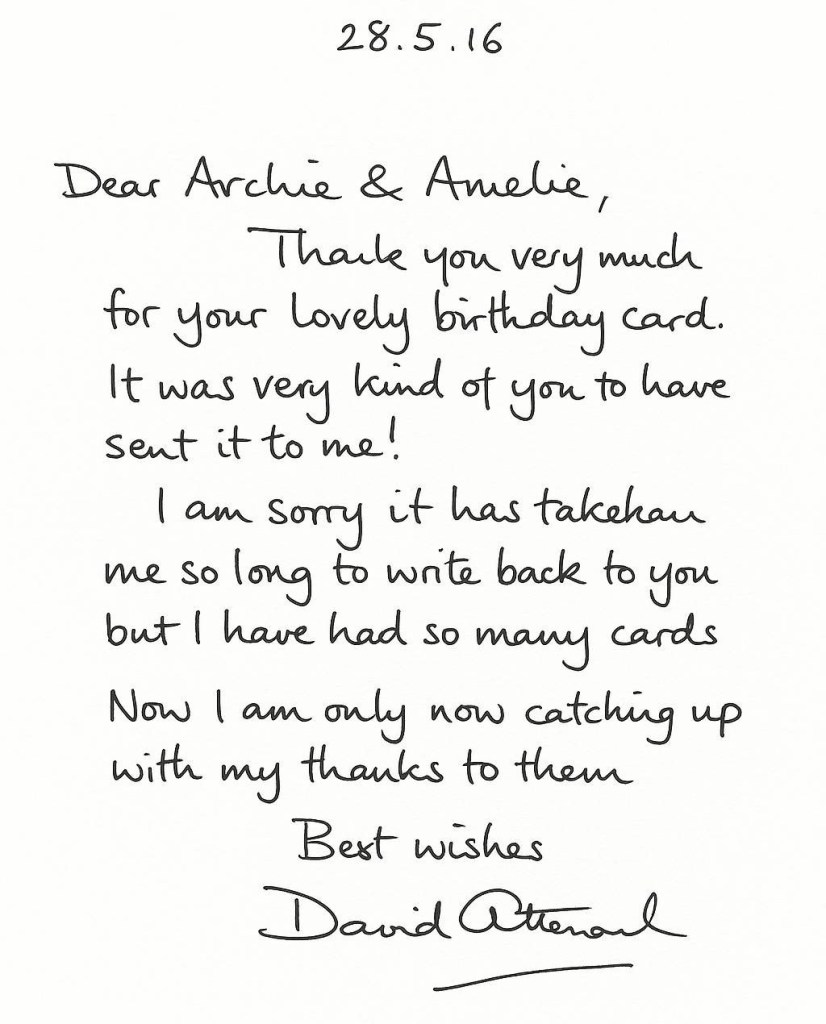 28.5.16
Dear Archie & Amelie,
Thank you very much
for your lovely birthday card.
It was very kind of you to have
sent it to me!
I am sorry it has takehan
me so long to write back to you
but I have had so many cards
Now I am only now catching up
with my thanks to them
Best wishes
David